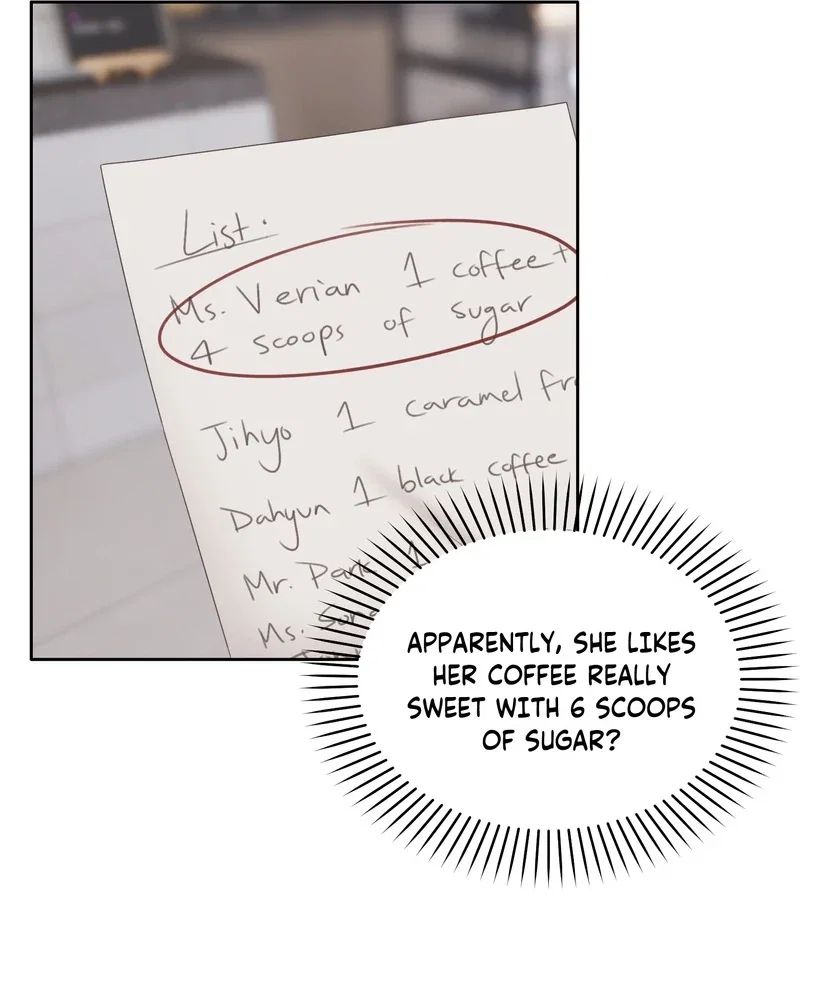 List.
Ms. Verian 1 coffee +
4 scoops of sugar
Jihyo 1 caramel
Dahyun 1 black coffee
Mr. Park 1
Ms.
APPARENTLY, SHE LIKES
HER COFFEE REALLY
SWEET WITH 6 SCOOPS
OF SUGAR?